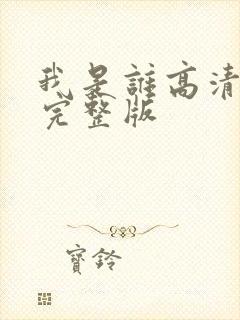 我是誰高清
完整版
寶鈴